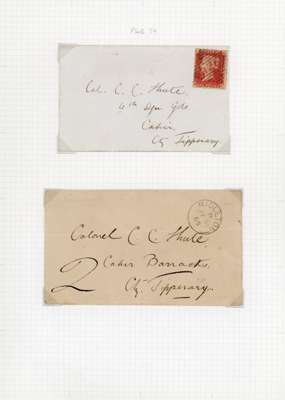 Col. C. C. Shute
4th Dgn Gds
Cahir
Co Tipperary
Colonel C C Shute
2
Cahir Barracks
Co Tipperary